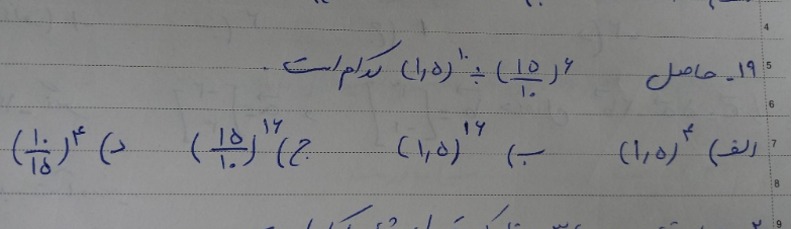 ۱۹ـ حاصل (۱۵/۱۰)^۶ ÷ (۱,۵)^۱۰ کدام است.
الف) (۱,۵)^۴ ب) (۱,۵)^۱۶ ج) (۱۵/۱۰)^۱۶ د) (۱۰/۱۵)^۴